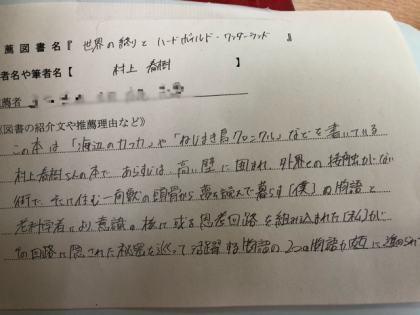 薦図書名『 世界の終りとハードボイルド・ワンダーランド 』
者名や筆者名【 村上春樹 】
薦者
図書の紹介文や推薦理由など》
この本は「海辺のカフカ」や「ねじまき鳥クロニクル」などを書いている
村上春樹さんの本で、あらすじは、高い壁に囲まれ、外界との接触がない
街で、そこに住む一角獣の頭骨から夢を読んで暮らす〔僕〕の物語と
老科学者により意識の核に或る思考回路を組み込まれた〔私〕が
その回路に隠された秘密を巡って活躍する物語の2つの物語が